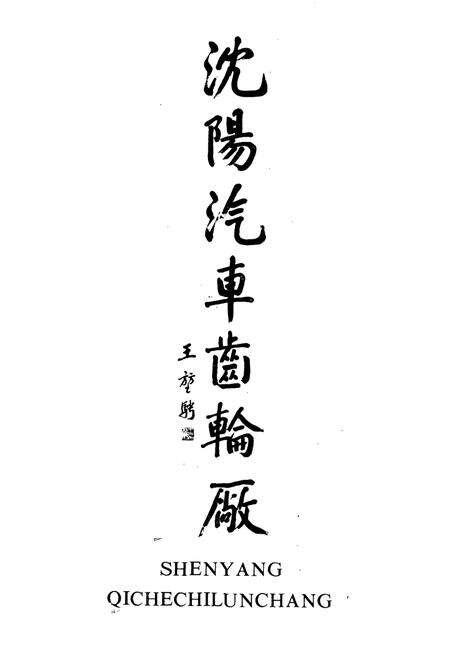 沈陽汽車齒輪廠
SHENYANG
QICHECHILUNCHANG